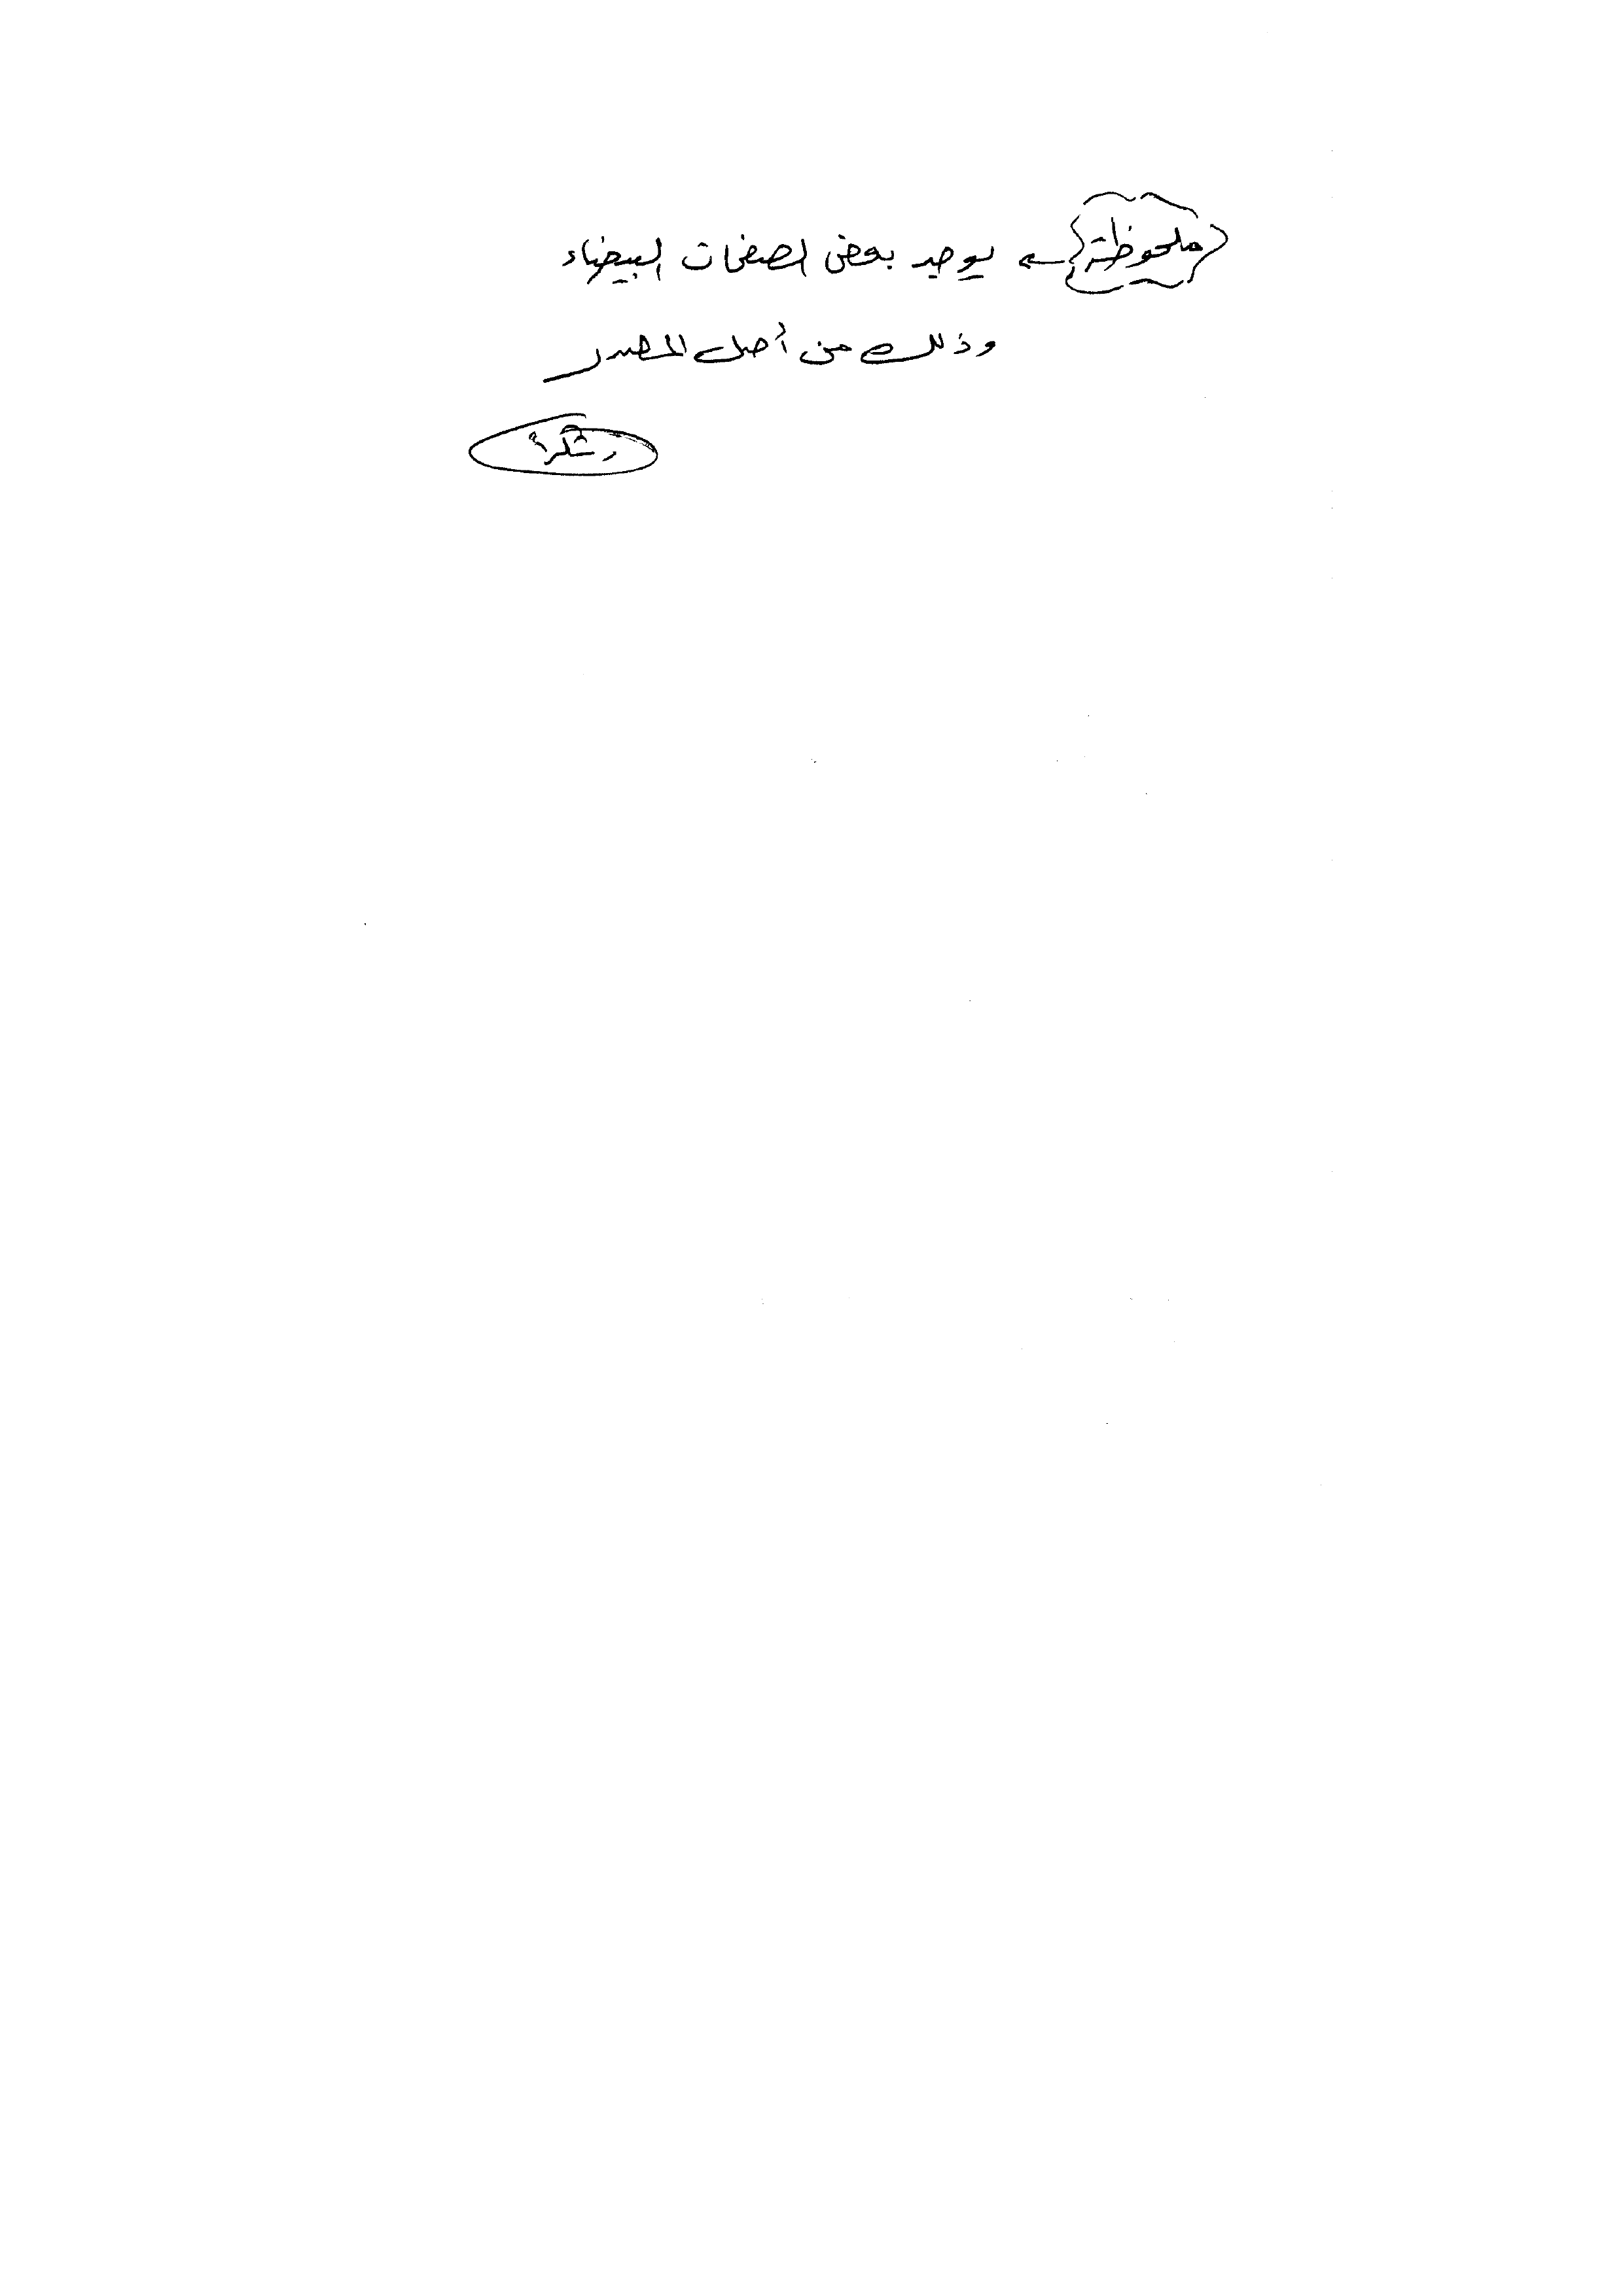 ملحوظة ← يوجد بعض الصفحات البيضاء
وذلك من أصل المصدر
وشكراً